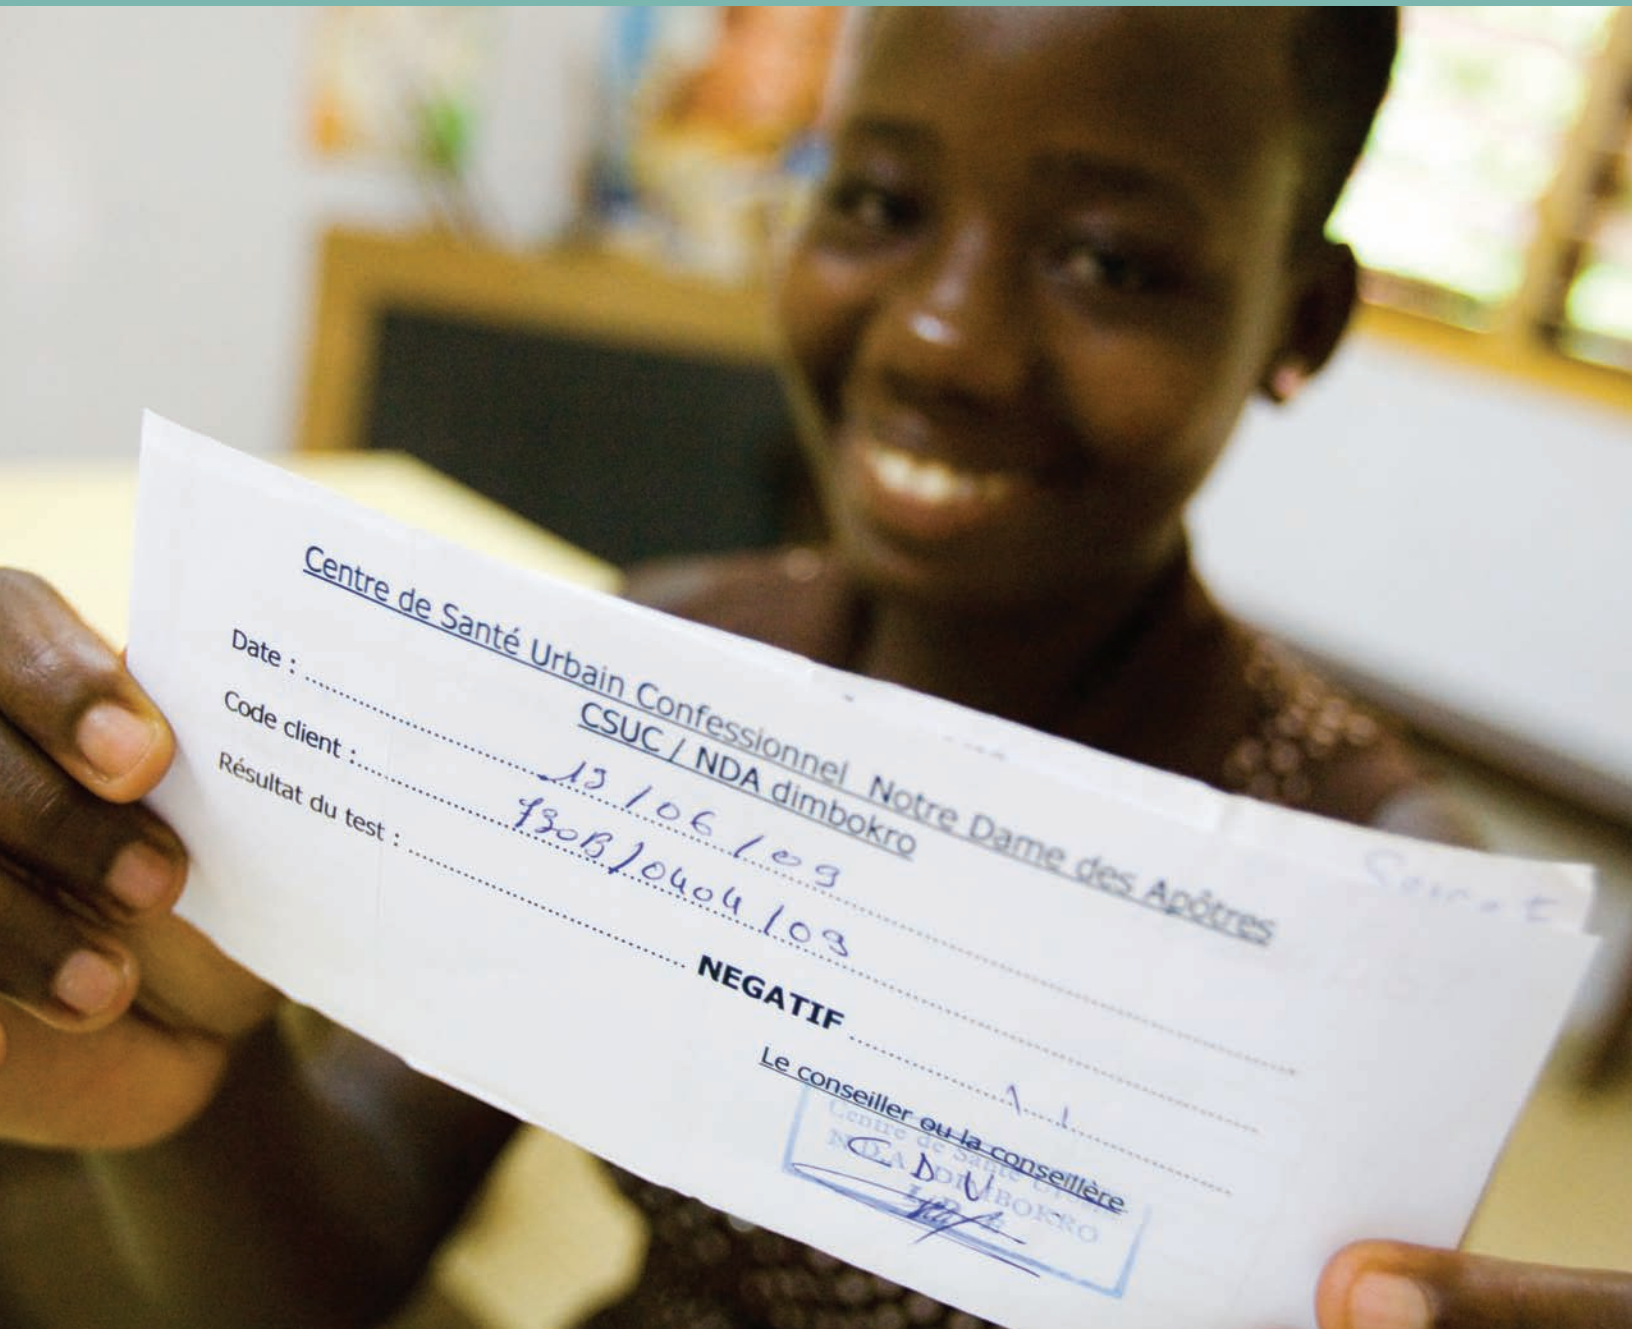 Centre de Santé Urbain Confessionnel Notre Dame des Apôtres
CSUC / NDA dimbokro
Date : 13/06/09
Code client : 130B/0404/09
Résultat du test : NEGATIF
Le conseiller ou la conseillère
Centre de Santé
NDA DIMBOKRO